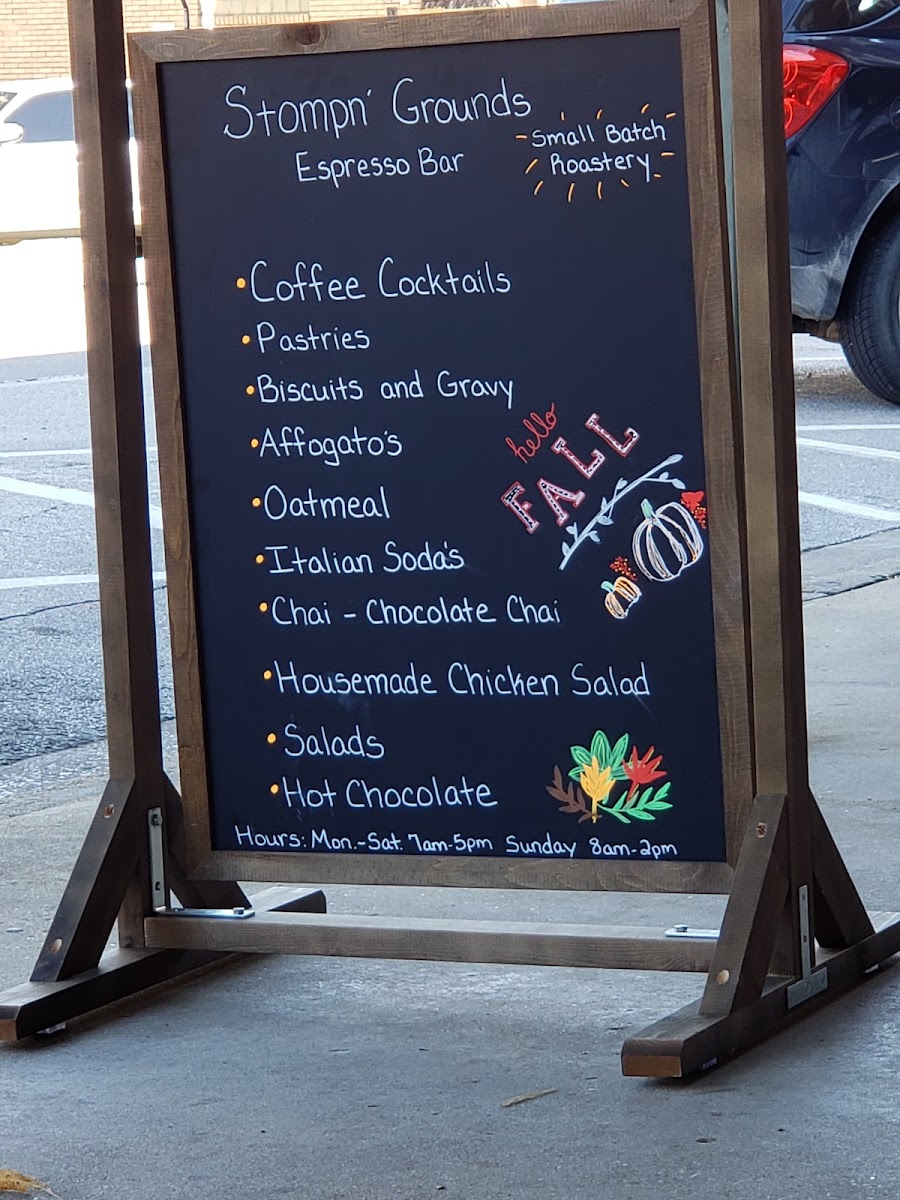 Stompn' Grounds
Espresso Bar
Small Batch
Roastery
•Coffee Cocktails
•Pastries
•Biscuits and Gravy
•Affogato's
•Oatmeal
•Italian Soda's
•Chai - Chocolate Chai
•Housemade Chicken Salad
•Salads
•Hot Chocolate
hello
FALL
Hours: Mon.-Sat. 7am-5pm Sunday 8am-2pm